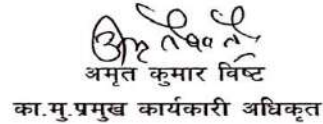 अमृत कुमार विष्ट
का.मु.प्रमुख कार्यकारी अधिकृत